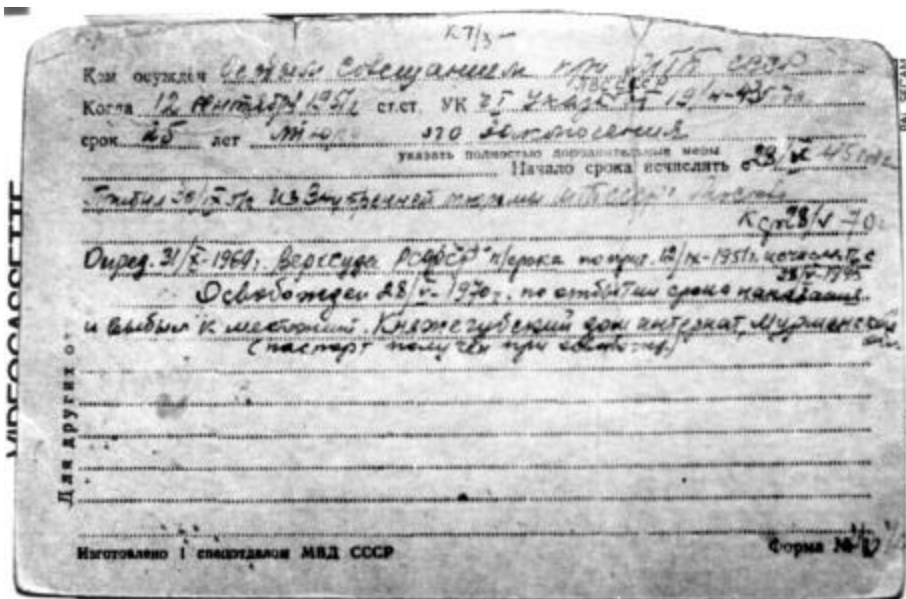 К 7/3 –
Кем осужден Особым Совещанием при МГБ СССР
Когда 12 сентября 1951г ст.ст. УК Указа 19/
срок 25 лет тюремного заключения
указать полностью дополнительные меры
Начало срока исчислять с 28/ 45 года
Прибыл 30/ из Внутренней тюрьмы МГБ СССР Москвы
К ср 28/ 70г
Опред. 31/X-1960г. Верхсуда РСФСР н/срока по приг. 12/IX-1951г. исчислять с
28/V-1945
Освобожден 28/V-1970г. по отбытии срока наказания
и выбыл к местожит. Княжегубский дом интернат, Мурманской
обл.
(паспорт получен при освобожд.)
Для других о
Изготовлено 1 спецотделом МВД СССР
Форма №
VIDEOCASSETTE
PAL SECAM